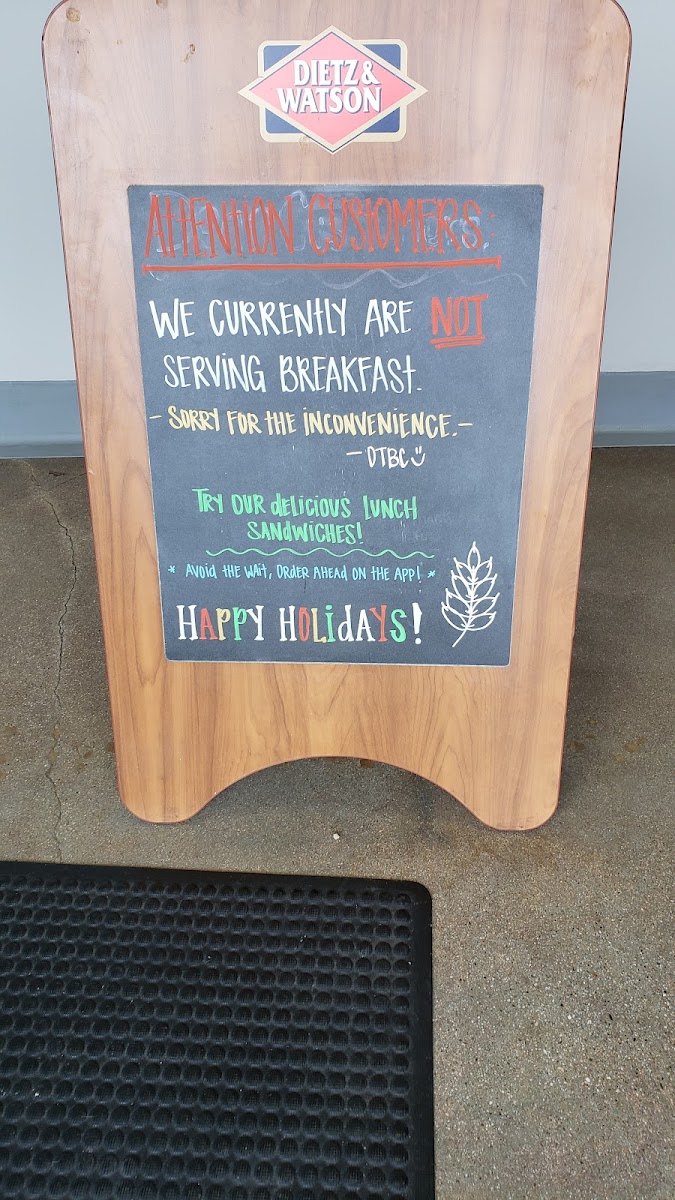 DIETZ &
WATSON
ATTENTION CUSTOMERS:
WE CURRENTLY ARE NOT
SERVING BREAKFAST.
- SORRY FOR THE INCONVENIENCE. -
- DTBC
TRY OUR dELICIOUS LUNCH
SANDWICHES!
* AVOID THE WAIT, ORDER AHEAD ON THE APP! *
HAPPY HOLidAYS!